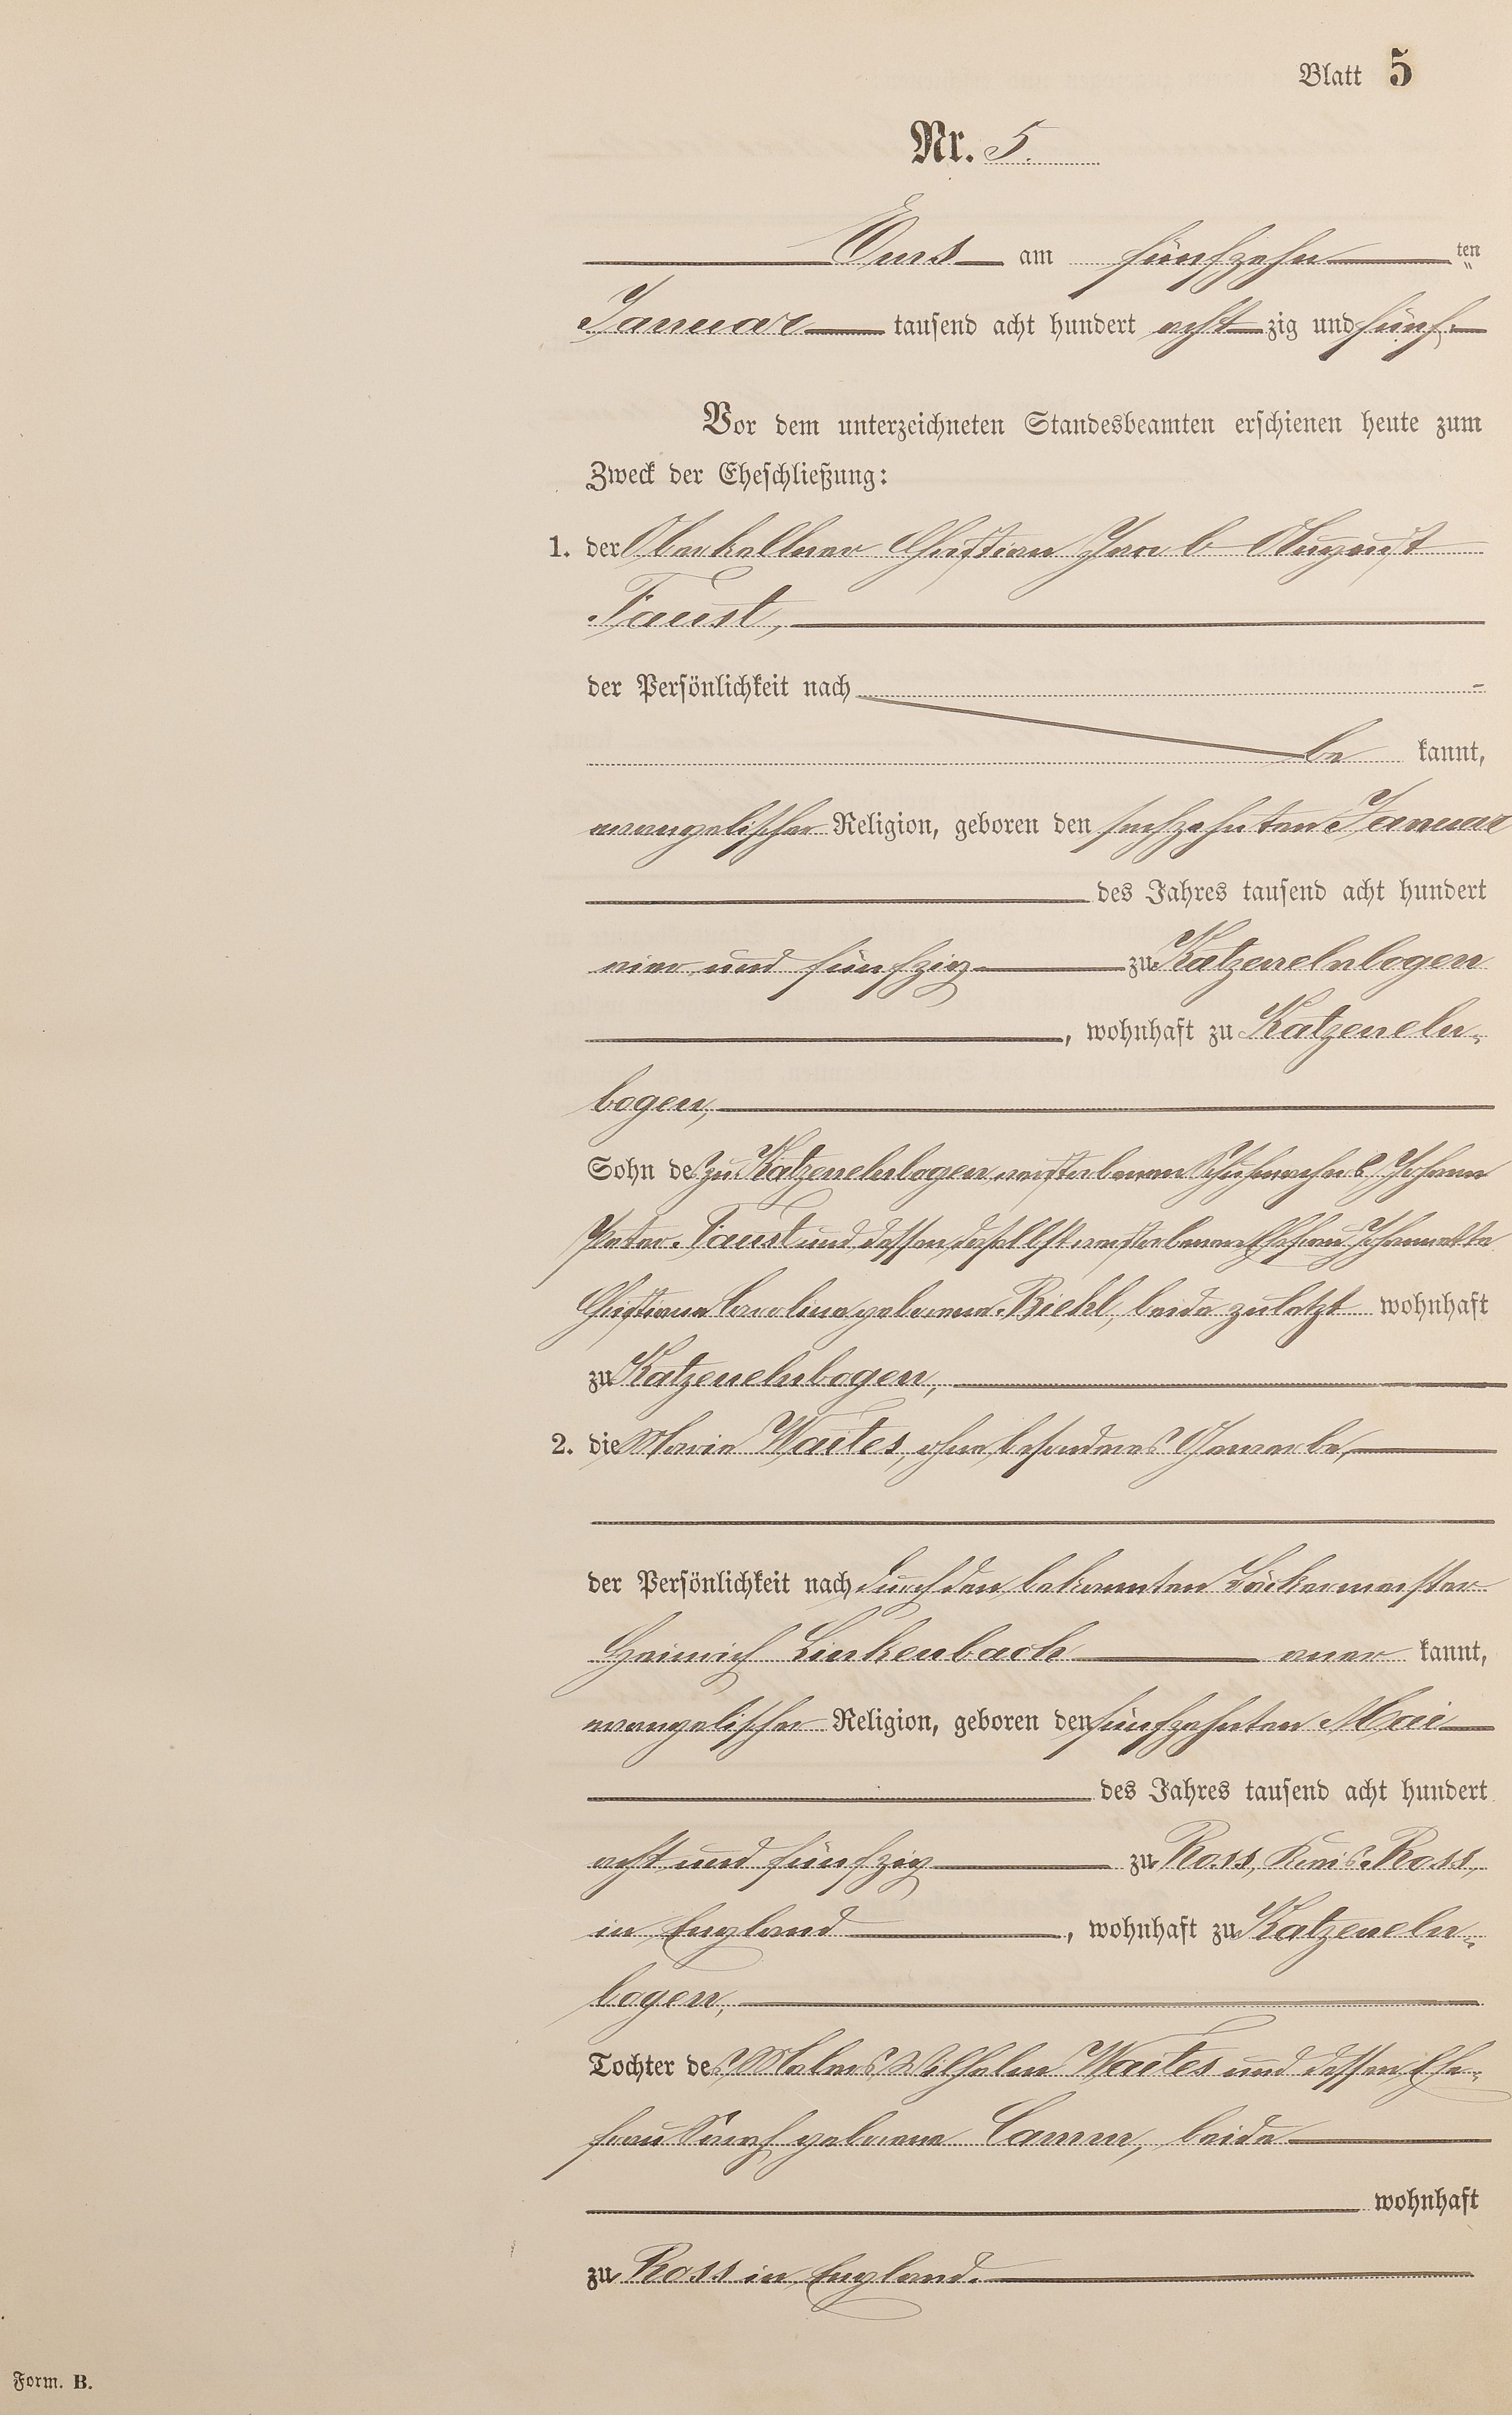 Blatt 5
Nr. 5.
Ems am fünfzehn ten
Januar tausend acht hundert acht zig und fünf.
Vor dem unterzeichneten Standesbeamten erschienen heute zum
Zweck der Eheschließung:
1. der Oberkellner Christian Jacob August
Faust,
der Persönlichkeit nach
be kannt,
evangelischer Religion, geboren den sechzehnten Januar
des Jahres tausend acht hundert
vier und fünfzig zu Katzenelnbogen
, wohnhaft zu Katzeneln-
bogen,
Sohn des zu Katzenelnbogen verstorbenen Schuhmachers Johann
Peter Faust und dessen daselbst verstorbenen Ehefrau Johannette
Christiane Caroline geborene Biehl, beide zuletzt wohnhaft
zu Katzenelnbogen,
2. die Marie Waites, ohne besonderes Gewerbe,
der Persönlichkeit nach durch den bekannten Bäckermeister
Heinrich Linkenbach aner kannt,
evangelischer Religion, geboren den fünfzehnten Mai
des Jahres tausend acht hundert
acht und fünfzig zu Ross, Kreis Ross,
in England , wohnhaft zu Katzeneln-
bogen,
Tochter des Malers Wilhelm Waites und dessen Ehe-
frau Sarah geborene Camm, beide
wohnhaft
zu Ross in England.
Form. B.